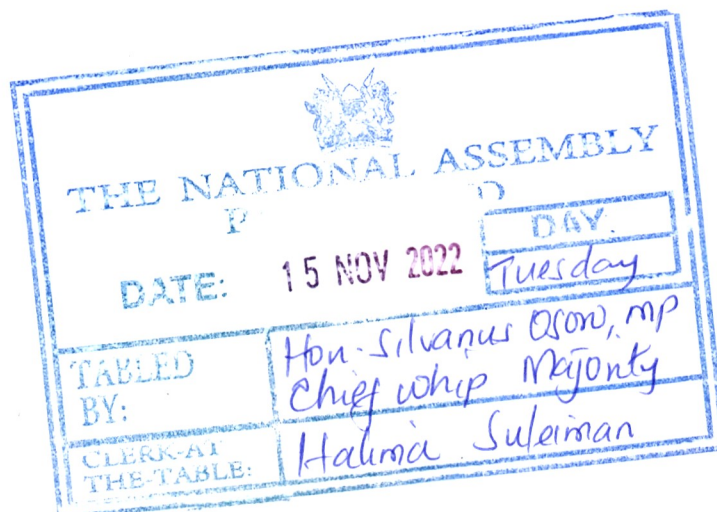 THE NATIONAL ASSEMBLY
DATE: 15 NOV 2022
DAY.
Tuesday
TABLED BY:
Hon. Silvanus Osoro, MP
Chief whip Majority
CLERK-AT THE-TABLE:
Halima Suleiman